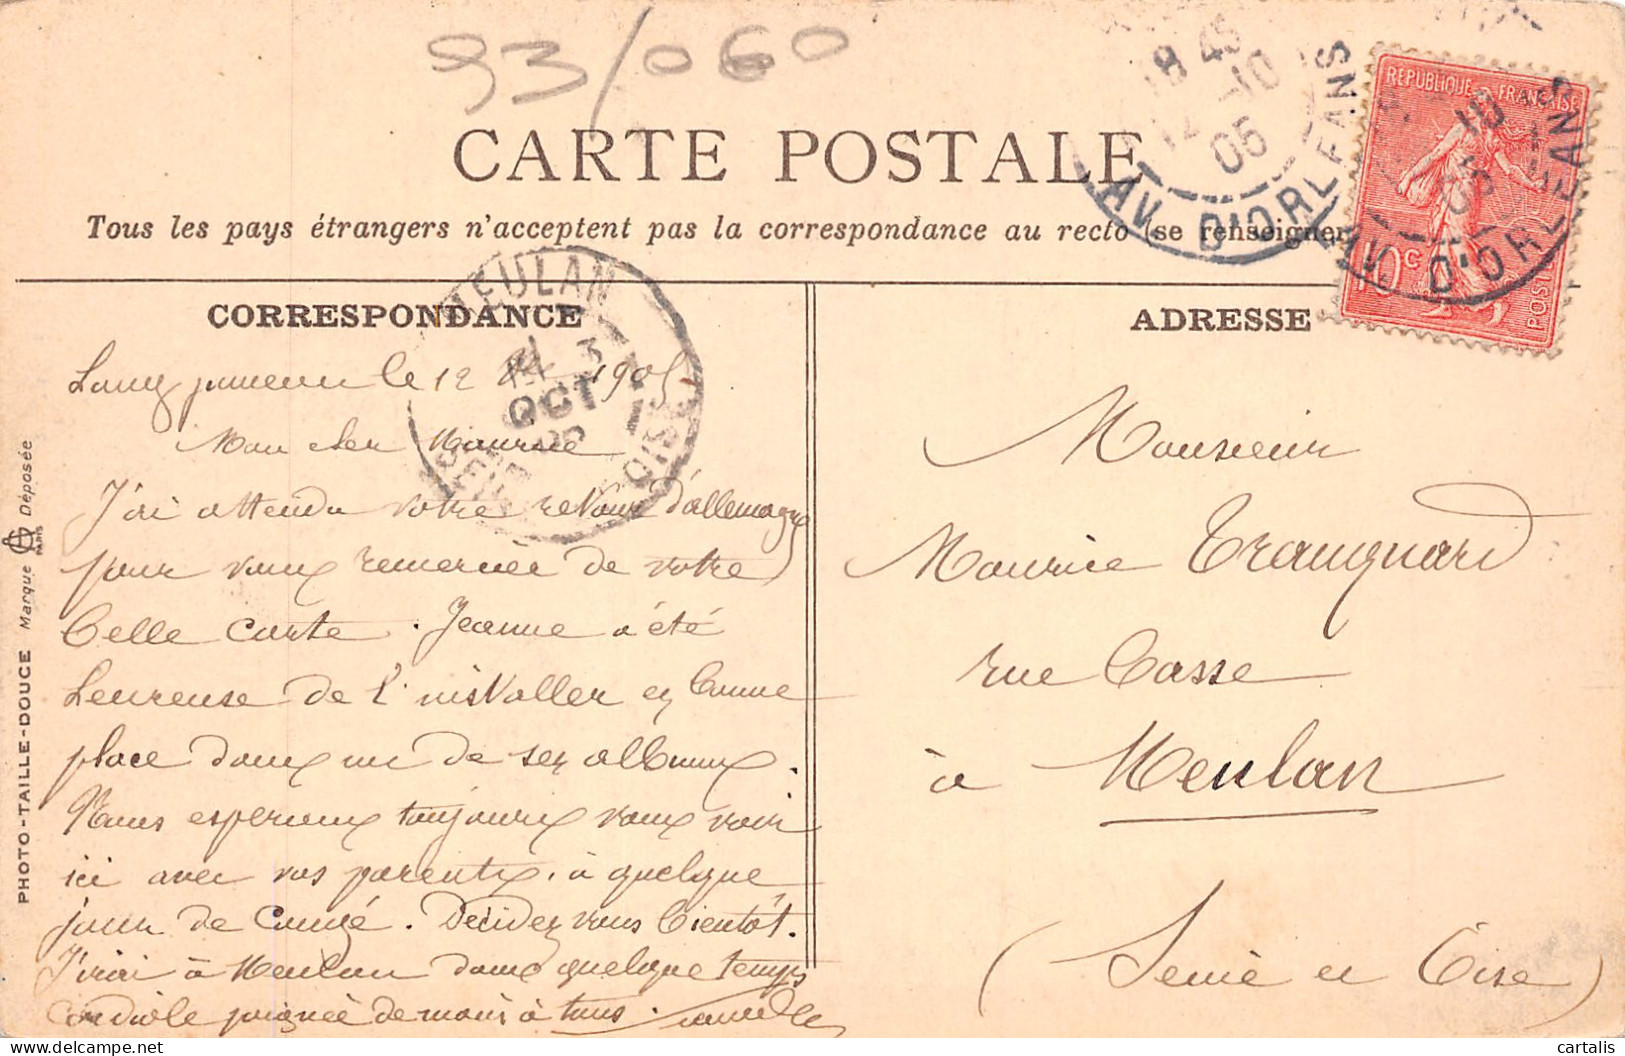 93/060
CARTE POSTALE
Tous les pays étrangers n'acceptent pas la correspondance au recto (se renseigner
18 45
12 -10
05
AV. D'ORLEANS
REPUBLIQUE FRANÇAISE
10c
POSTES
10
05
AV. D'ORLEANS
CORRESPONDANCE
ADRESSE
MEULAN
OCT
OISE
le 12 1905
Mon cher Maurice
J'ai attendu votre retour d'allemagne
pour vous remercier de votre
belle carte. Jeanne a été
heureuse de l'installer en bonne
place dans un de ses albums.
Nous espérons toujours vous voir
ici avec vos parents, à quelque
jour de congé. Décidez vous bientôt.
J'irai à Meulan dans quelque temps
Cordiale poignée de main à tous.
Monsieur
Maurice
rue Basse
à Meulan
(Seine et Oise)
PHOTO-TAILLE-DOUCE Marque PARIS Déposée
cartalis
delcampe.net